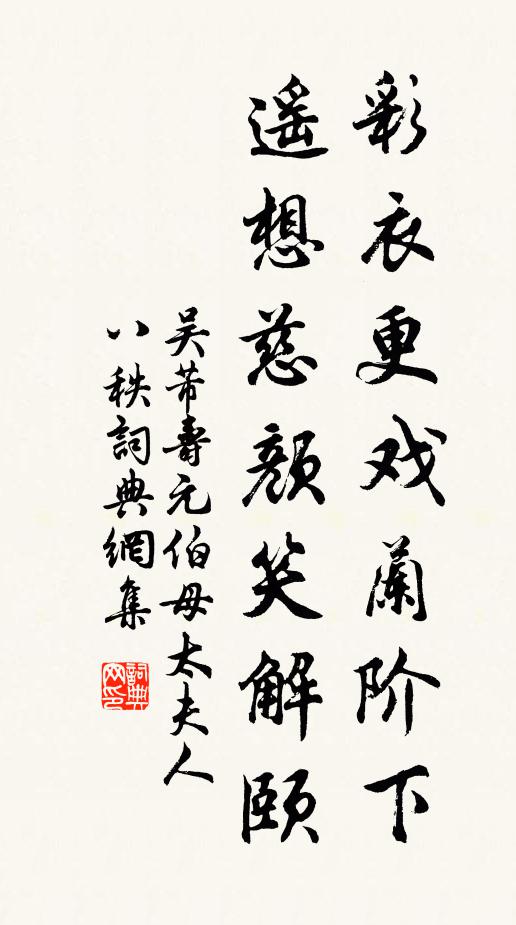 彩衣更戏蘭阶下
遥想慈顔笑解頤
吴芾壽元伯母太夫人
八秩詞典網集
詞典网印